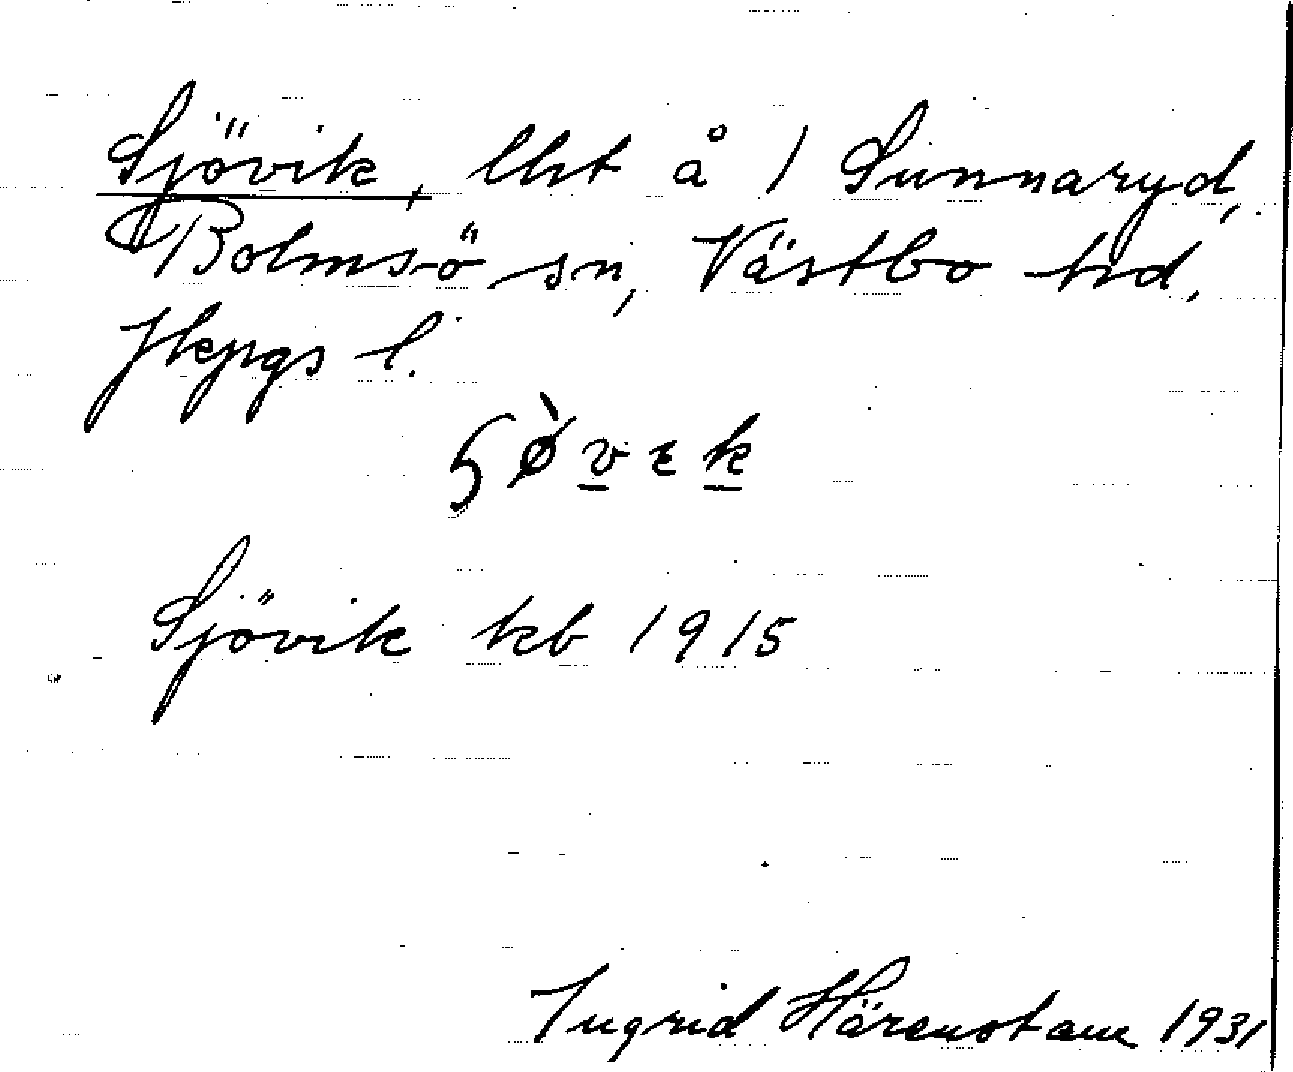 Sjövik, lht å 1 Sunnaryd,
Bolmsö sn, Västbo hd,
Jkpgs l.
Sjövik kb 1915
Ingrid Härenstam 1931